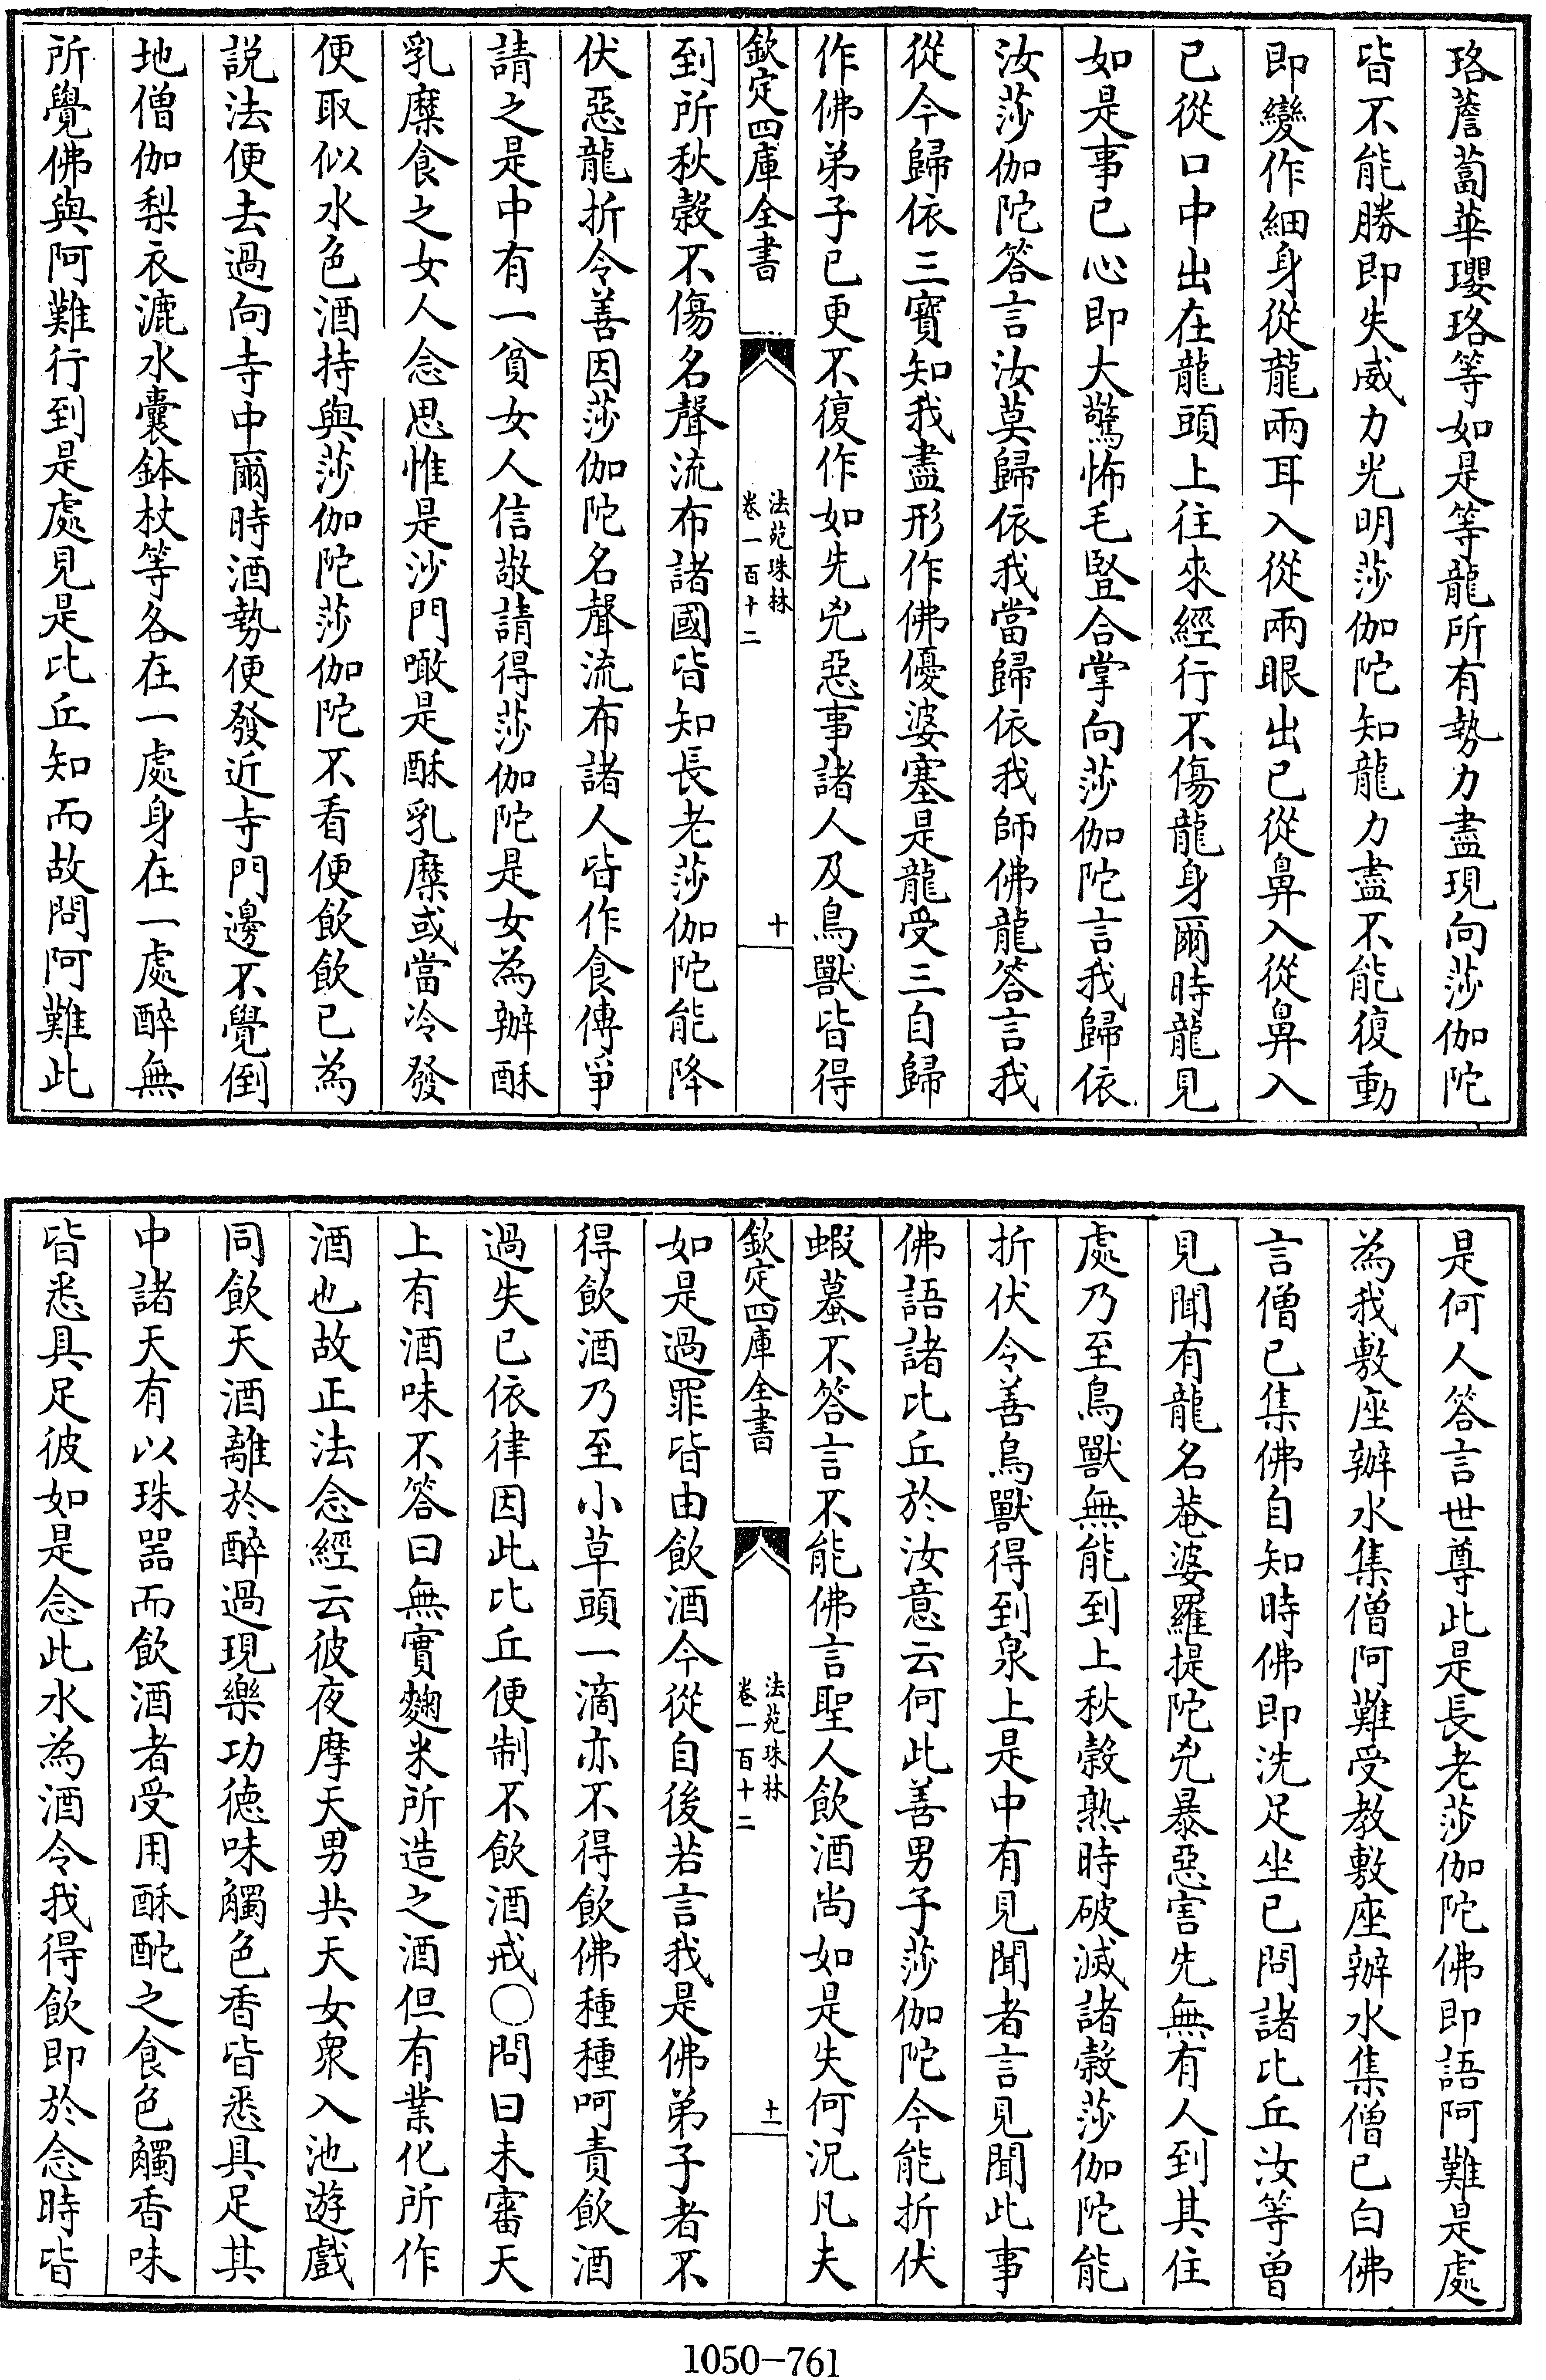 珞薝蔔華瓔珞等如是等龍所有勢力盡現向莎伽陀
皆不能勝即失威力光明莎伽陀知龍力盡不能復動
即變作細身從龍兩耳入從兩眼出已從鼻入從鼻入
已從口中出在龍頭上往來經行不傷龍身爾時龍見
如是事已心即大驚怖毛豎合掌向莎伽陀言我歸依
汝莎伽陀答言汝莫歸依我當歸依我師佛龍答言我
從今歸依三寶知我盡形作佛優婆塞是龍受三自歸
作佛弟子已更不復作如先兇惡事諸人及鳥獸皆得
欽定四庫全書
法苑珠林
卷一百十二
十
到所秋穀不傷名聲流布諸國皆知長老莎伽陀能降
伏惡龍折令善因莎伽陀名聲流布諸人皆作食傳爭
請之是中有一貧女人信敬請得莎伽陀是女為辦酥
乳糜食之女人念思惟是沙門噉是酥乳糜或當冷發
便取似水色酒持與莎伽陀莎伽陀不看便飲飲已為
説法便去過向寺中爾時酒勢便發近寺門邊不覺倒
地僧伽梨衣漉水囊鉢杖等各在一處身在一處醉無
所覺佛與阿難行到是處見是比丘知而故問阿難此
是何人答言世尊此是長老莎伽陀佛即語阿難是處
為我敷座辦水集僧阿難受教敷座辦水集僧已白佛
言僧已集佛自知時佛即洗足坐已問諸比丘汝等曾
見聞有龍名菴婆羅提陀兇暴惡害先無有人到其住
處乃至鳥獸無能到上秋穀熟時破滅諸穀莎伽陀能
折伏令善鳥獸得到泉上是中有見聞者言見聞此事
佛語諸比丘於汝意云何此善男子莎伽陀今能折伏
蝦蟇不答言不能佛言聖人飲酒尚如是失何況凡夫
欽定四庫全書
法苑珠林
卷一百十二
十一
如是過罪皆由飲酒今從自後若言我是佛弟子者不
得飲酒乃至小草頭一滴亦不得飲佛種種呵責飲酒
過失已依律因此比丘便制不飲酒戒○問曰未審天
上有酒味不答曰無實麴米所造之酒但有業化所作
酒也故正法念經云彼夜摩天男共天女衆入池遊戲
同飲天酒離於醉過現樂功徳味觸色香皆悉具足其
中諸天有以珠器而飲酒者受用酥酡之食色觸香味
皆悉具足彼如是念此水為酒令我得飲即於念時皆
1050-761